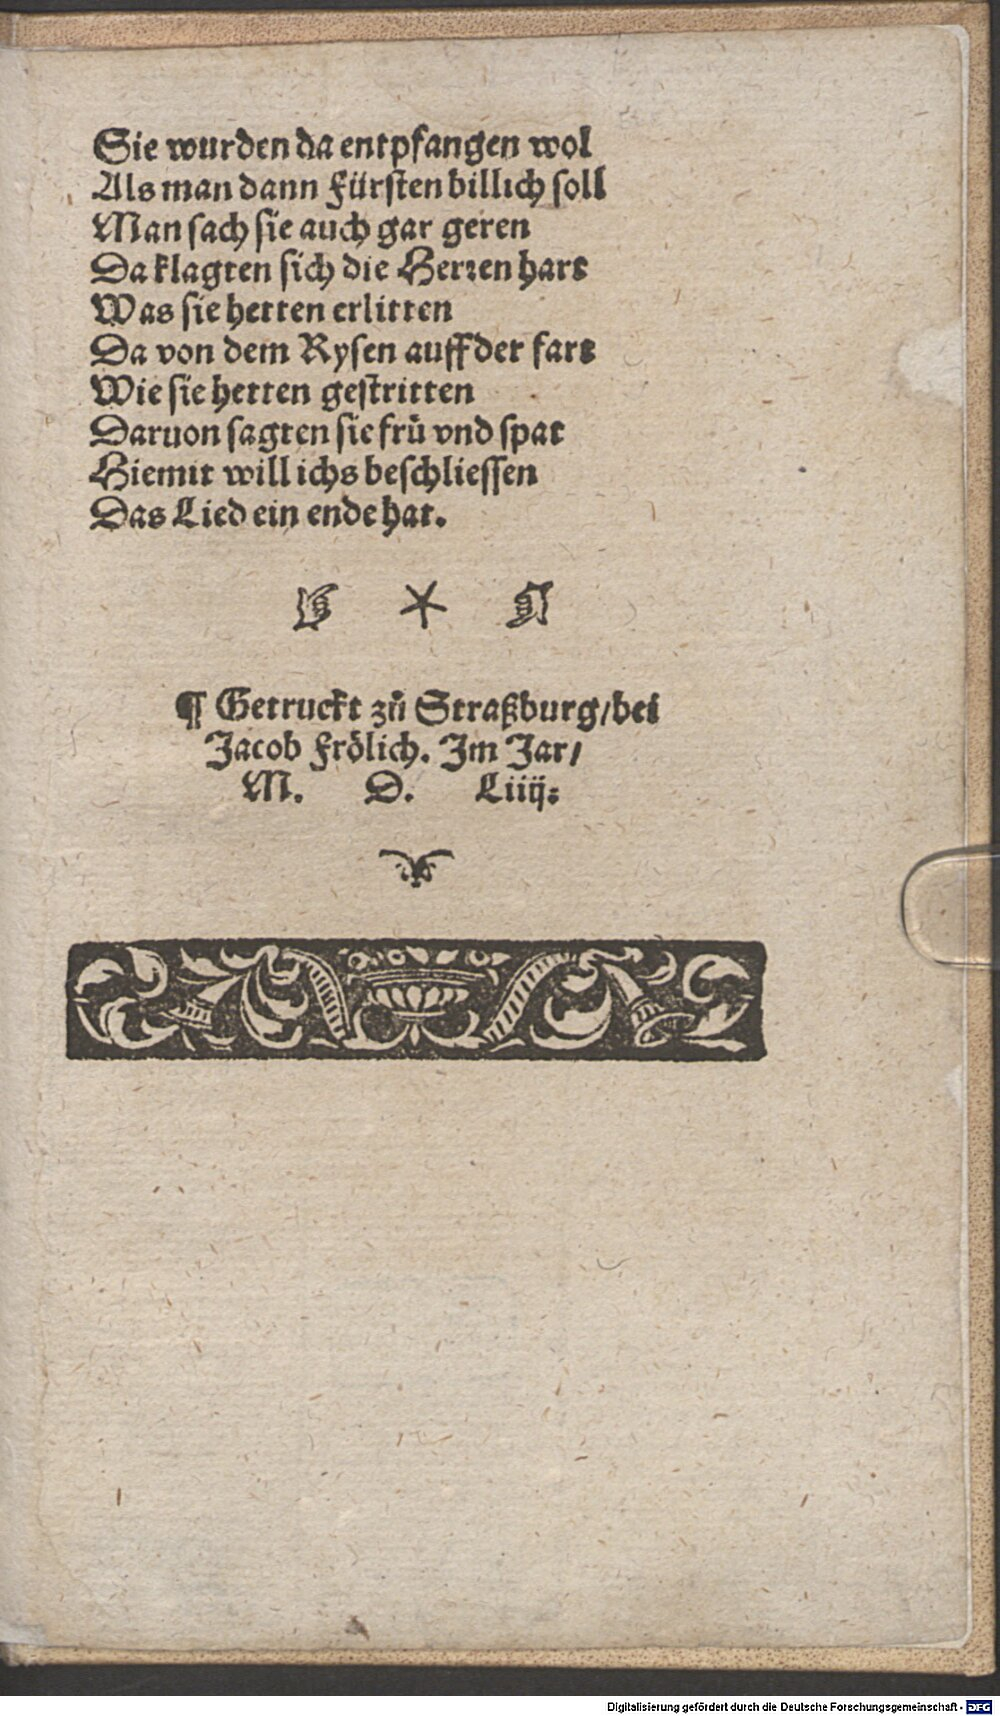 Sie wurden da entpfangen wol
Als man dann Fürsten billich soll
Man sach sie auch gar geren
Da klagten sich die Herren hart
Was sie hetten erlitten
Da von dem Rysen auff der fart
Wie sie hetten gestritten
Daruon sagten sie frů vnd spat
Hiemit will ichs beschliessen
Das Lied ein ende hat.
¶ Getruckt zů Straßburg/bei
Jacob Frölich. Im Jar/
M. D. Liiij.
Digitalisierung gefördert durch die Deutsche Forschungsgemeinschaft - DFG